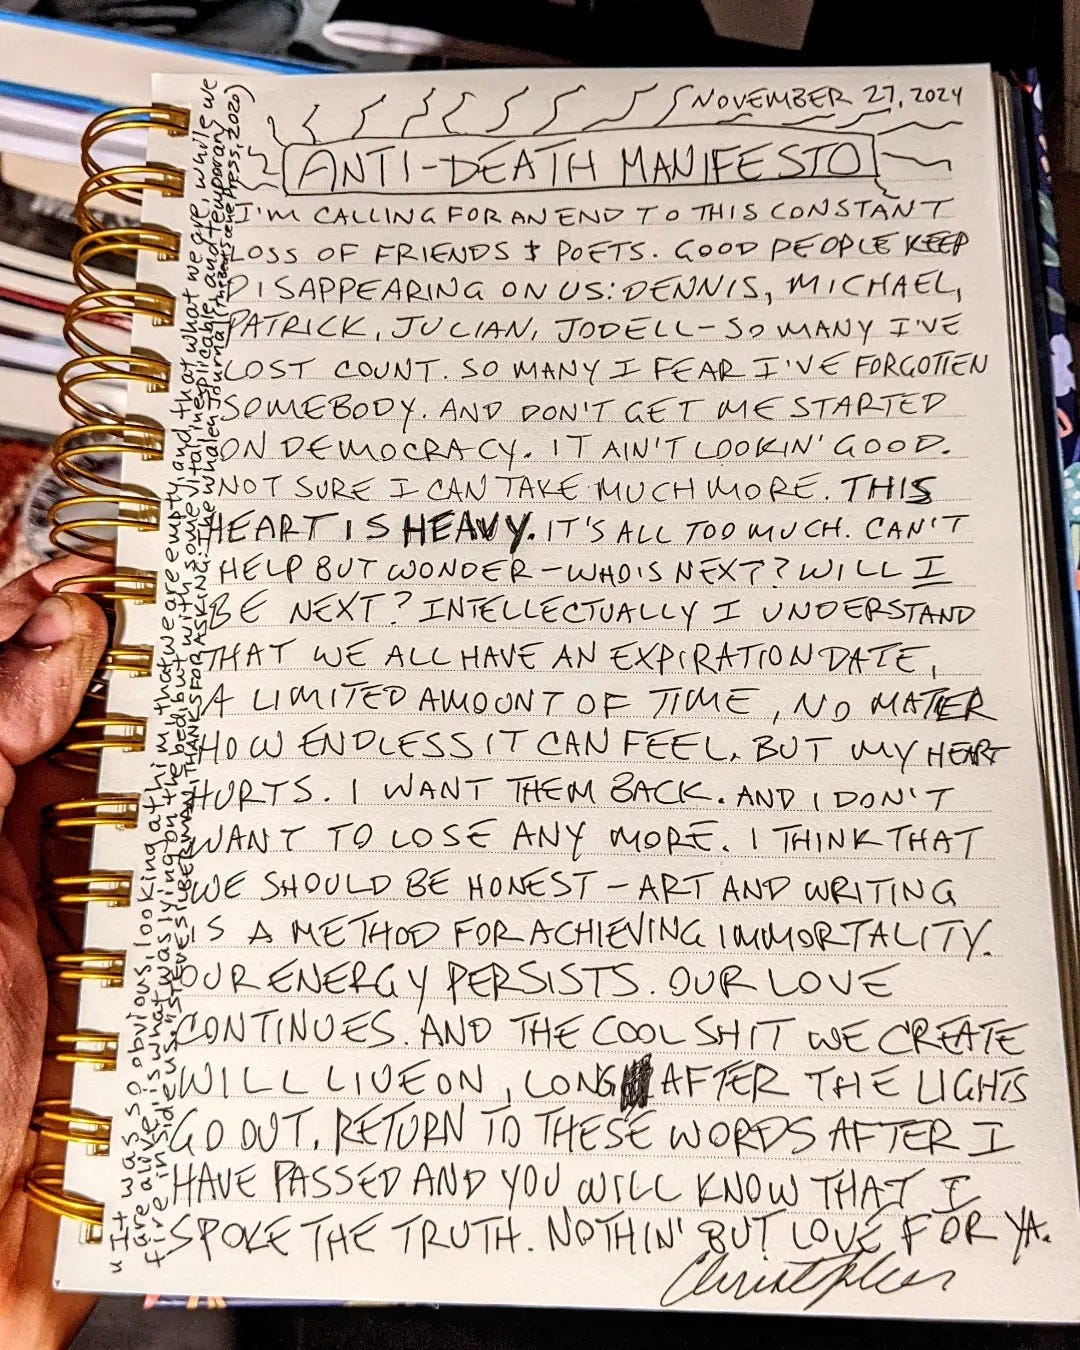 NOVEMBER 27, 2024
ANTI-DEATH MANIFESTO
I'M CALLING FOR AN END TO THIS CONSTANT
LOSS OF FRIENDS & POETS. GOOD PEOPLE KEEP
DISAPPEARING ON US: DENNIS, MICHAEL,
PATRICK, JULIAN, JODELL - SO MANY I'VE
LOST COUNT. SO MANY I FEAR I'VE FORGOTTEN
SOMEBODY. AND DON'T GET ME STARTED
ON DEMOCRACY. IT AIN'T LOOKIN' GOOD.
NOT SURE I CAN TAKE MUCH MORE. THIS
HEART IS HEAVY. IT'S ALL TOO MUCH. CAN'T
HELP BUT WONDER - WHO'S NEXT? WILL I
BE NEXT? INTELLECTUALLY I UNDERSTAND
THAT WE ALL HAVE AN EXPIRATION DATE,
A LIMITED AMOUNT OF TIME, NO MATTER
HOW ENDLESS IT CAN FEEL. BUT MY HEART
HURTS. I WANT THEM BACK. AND I DON'T
WANT TO LOSE ANY MORE. I THINK THAT
WE SHOULD BE HONEST - ART AND WRITING
IS A METHOD FOR ACHIEVING IMMORTALITY.
OUR ENERGY PERSISTS. OUR LOVE
CONTINUES. AND THE COOL SHIT WE CREATE
WILL LIVE ON, LONG AFTER THE LIGHTS
GO OUT. RETURN TO THESE WORDS AFTER I
HAVE PASSED AND YOU WILL KNOW THAT I
SPOKE THE TRUTH. NOTHIN' BUT LOVE FOR YA.
"It was so obvious, looking at him, that we are empty, and that what we are, while we
are alive, is what was lying on the bed, but with some vital, inexplicable, and temporary
fire inside us." STEVE SILBERMAN | THANKS FOR ASKING: The Whalen Journal (
Press, 2020)